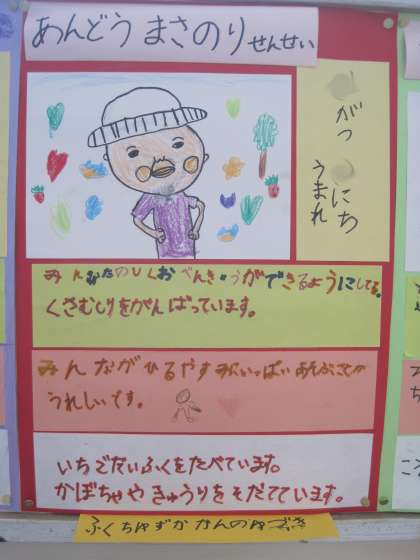 あんどう まさのり せんせい
がつ にち
うまれ
みんなたのしくおべんきょうができるようにしてる。
くさむしりをがんばっています。
みんながひるやすみにいっぱいあそぶことが
うれしいです。
いちごだいふくをたべています。
かぼちゃやきゅうりをそだてています。